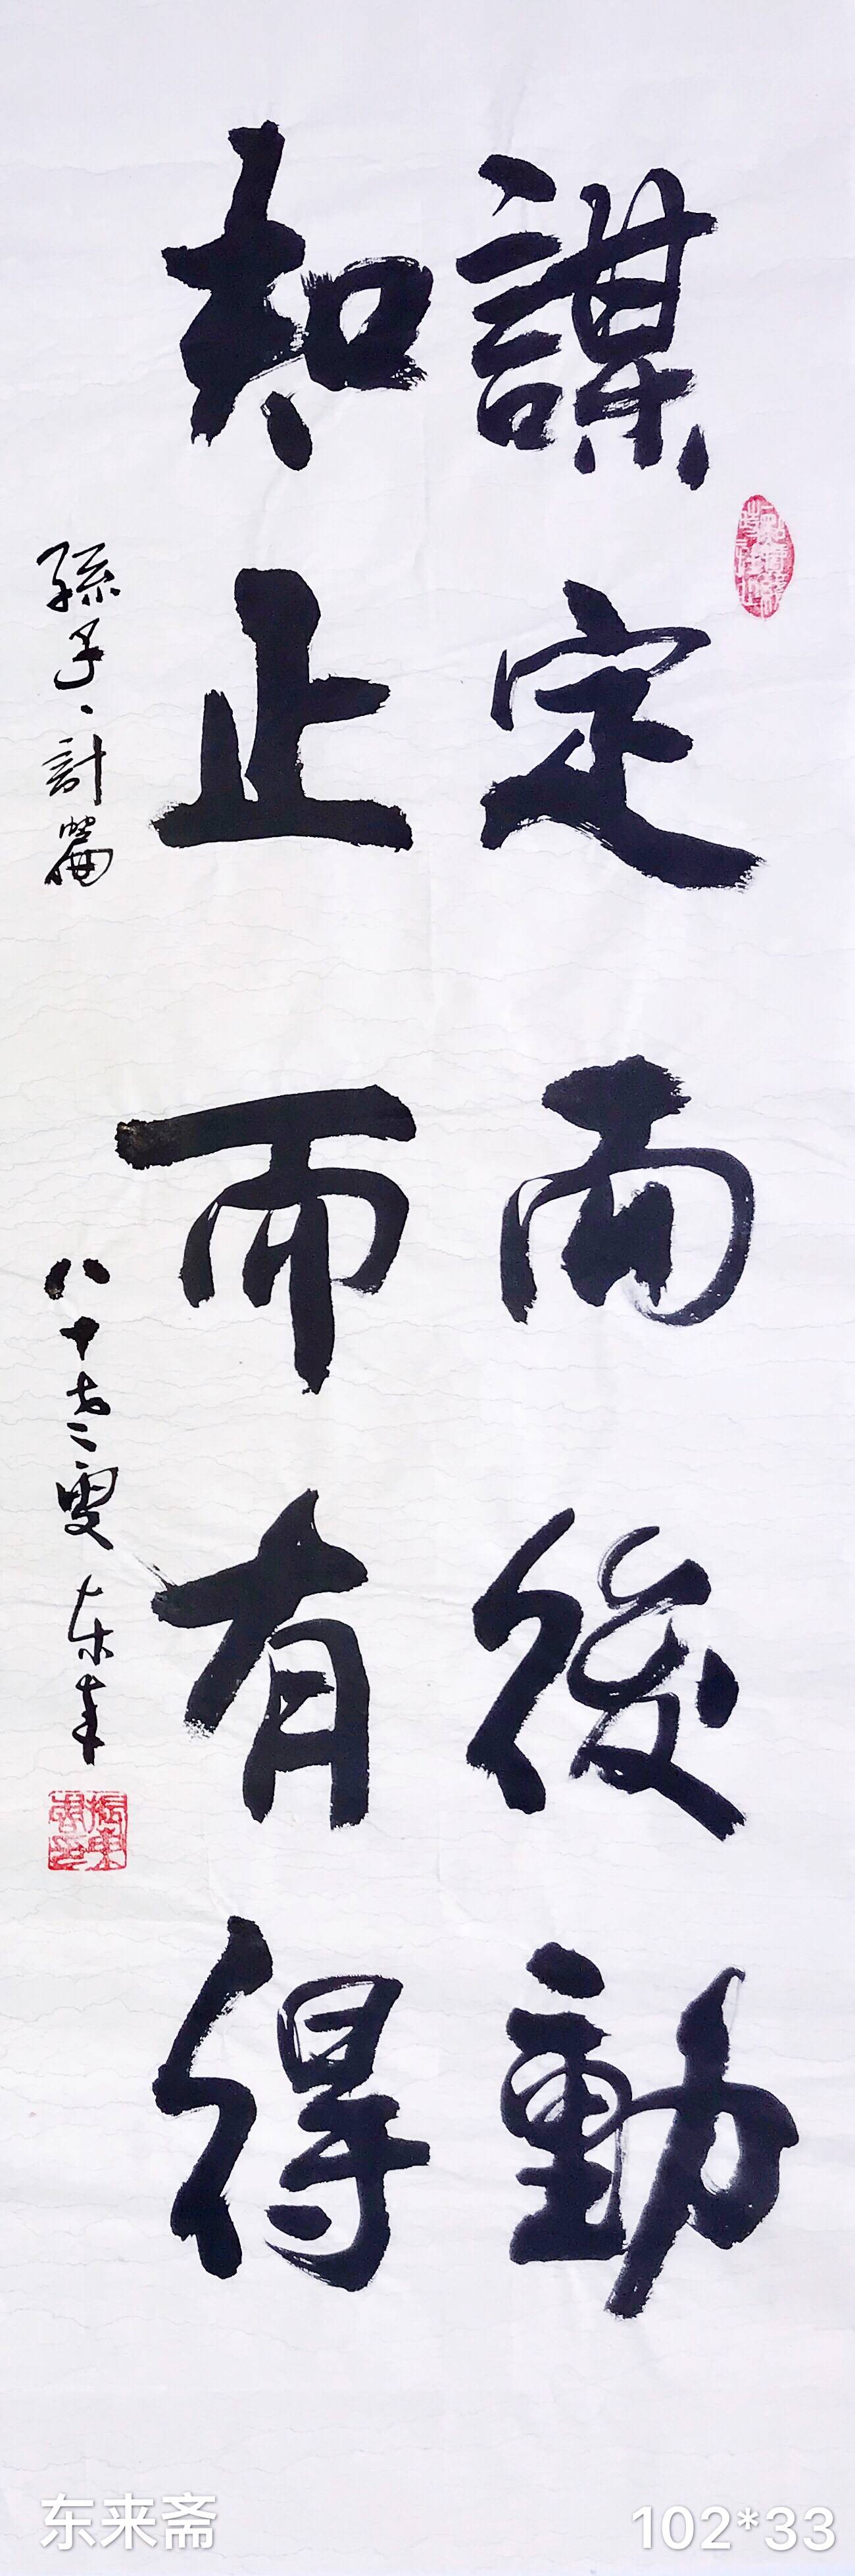 謀定而後動
知止而有得
孫子、計篇
八十七叟
东来斋
102*33